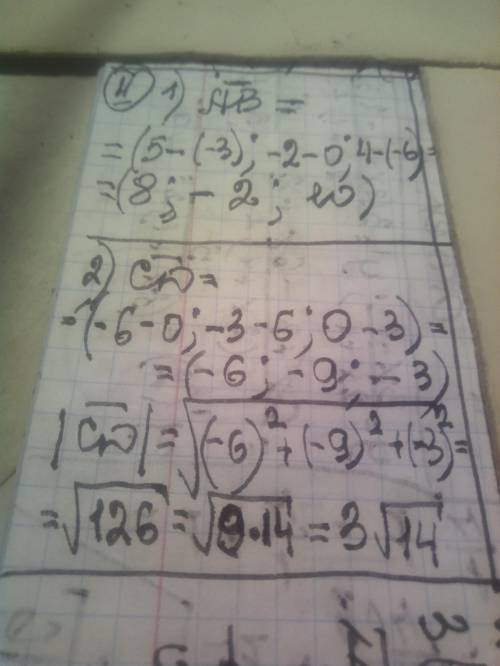 ④ 1) A̅B̅ =
= (5-(-3); -2-0; 4-(-6)) =
= (8; -2; 10)
2) C̅D̅ =
= (-6-0; -3-6; 0-3) =
= (-6; -9; -3)
|C̅D̅| = √((-6)² + (-9)² + (-3)²) =
= √126 = √9·14 = 3√14